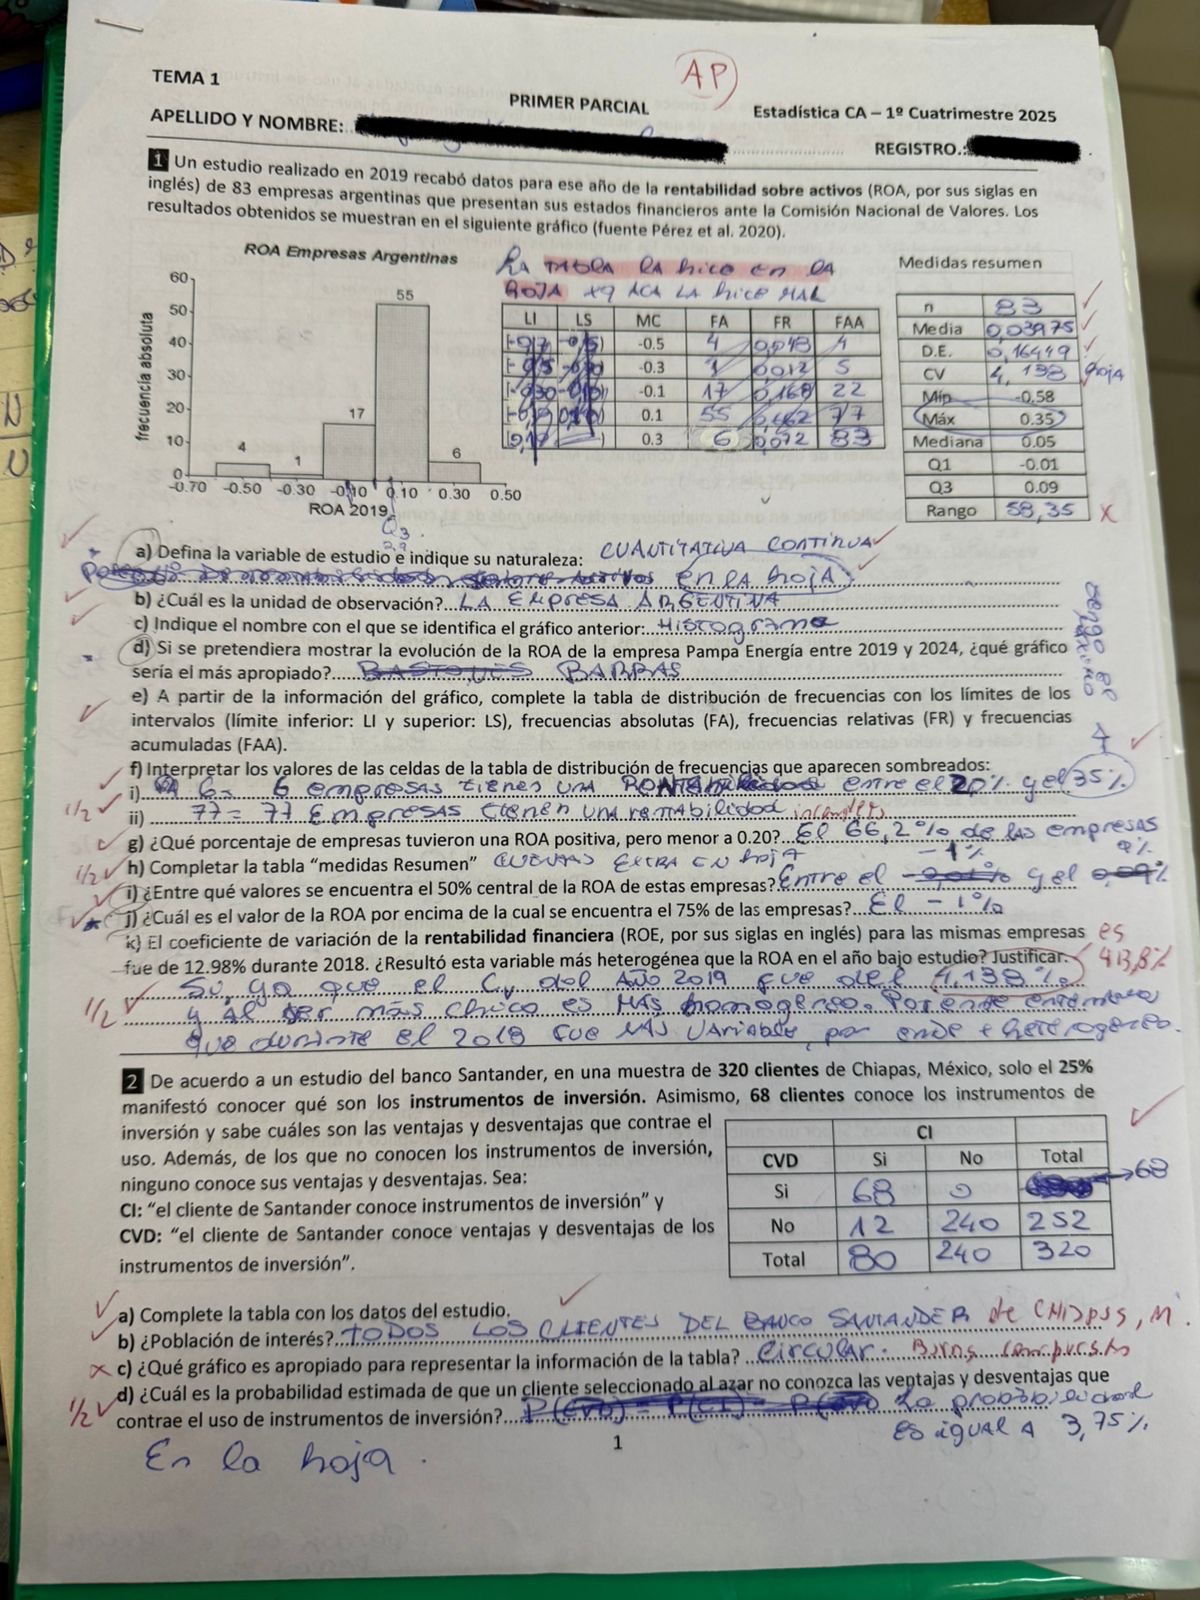 TEMA 1
AP
PRIMER PARCIAL
Estadística CA – 1º Cuatrimestre 2025
APELLIDO Y NOMBRE:
REGISTRO.:
1 Un estudio realizado en 2019 recabó datos para ese año de la rentabilidad sobre activos (ROA, por sus siglas en
inglés) de 83 empresas argentinas que presentan sus estados financieros ante la Comisión Nacional de Valores. Los
resultados obtenidos se muestran en el siguiente gráfico (fuente Pérez et al. 2020).
ROA Empresas Argentinas
frecuencia absoluta
60
50
40
30
20
10
0
4
1
17
55
6
-0.70 -0.50 -0.30 -0.10 0.10 0.30 0.50
ROA 2019
Q3
LA TABLA LA hice en LA
HOJA xq ACA LA hice MAL
LI LS MC FA FR FAA
-0.5 4 0,048 4
-0.3 1 0,012 5
-0.1 17 0,168 22
0.1 55 0,662 77
0.3 6 0,072 83
Medidas resumen
n 83
Media 0,03975
D.E. 0,16449
CV 4,138 hoja
Mín -0.58
Máx 0.35
Mediana 0.05
Q1 -0.01
Q3 0.09
Rango 58,35
a) Defina la variable de estudio e indique su naturaleza: CUANTITATIVA CONTINUA
EN LA hoJA
b) ¿Cuál es la unidad de observación? LA EMPRESA ARGENTINA
c) Indique el nombre con el que se identifica el gráfico anterior: Histograma
d) Si se pretendiera mostrar la evolución de la ROA de la empresa Pampa Energía entre 2019 y 2024, ¿qué gráfico
sería el más apropiado? BASTONES BARRAS
e) A partir de la información del gráfico, complete la tabla de distribución de frecuencias con los límites de los
intervalos (límite inferior: LI y superior: LS), frecuencias absolutas (FA), frecuencias relativas (FR) y frecuencias
acumuladas (FAA).
f) Interpretar los valores de las celdas de la tabla de distribución de frecuencias que aparecen sombreados:
i) 6= 6 empresas tienes una RENTAbilidad entre el 20% y el 35%
1/2 ii) 77= 77 EmpresAS tienen una rentabilidad
g) ¿Qué porcentaje de empresas tuvieron una ROA positiva, pero menor a 0.20? El 66,2% de las empresas
1/2 h) Completar la tabla "medidas Resumen" CUENTAS EXTRA EN hojA
-1% 9%
i) ¿Entre qué valores se encuentra el 50% central de la ROA de estas empresas? Entre el y el
j) ¿Cuál es el valor de la ROA por encima de la cual se encuentra el 75% de las empresas? El -1%
k) El coeficiente de variación de la rentabilidad financiera (ROE, por sus siglas en inglés) para las mismas empresas es
fue de 12.98% durante 2018. ¿Resultó esta variable más heterogénea que la ROA en el año bajo estudio? Justificar. 413,8%
Si, ya que el Cv del Año 2019 fue del 4,138%
1/2 y Al ser más chico es MAS homogéneo. Por ende entendemos
que durante el 2018 fue MAS VARIAble, por ende + heterogeneo.
2 De acuerdo a un estudio del banco Santander, en una muestra de 320 clientes de Chiapas, México, solo el 25%
manifestó conocer qué son los instrumentos de inversión. Asimismo, 68 clientes conoce los instrumentos de
inversión y sabe cuáles son las ventajas y desventajas que contrae el
uso. Además, de los que no conocen los instrumentos de inversión,
ninguno conoce sus ventajas y desventajas. Sea:
CI: "el cliente de Santander conoce instrumentos de inversión" y
CVD: "el cliente de Santander conoce ventajas y desventajas de los
instrumentos de inversión".
CI
CVD Si No Total
Si 68 0 68
No 12 240 252
Total 80 240 320
a) Complete la tabla con los datos del estudio.
b) ¿Población de interés? TODOS LOS CLIENTES DEL BANCO SANTANDER de CHIApas, M.
c) ¿Qué gráfico es apropiado para representar la información de la tabla? Circular. Barras comp.
1/2 d) ¿Cuál es la probabilidad estimada de que un cliente seleccionado al azar no conozca las ventajas y desventajas que
contrae el uso de instrumentos de inversión? La probabilidad
Es igual A 3,75%
1
En la hoja.